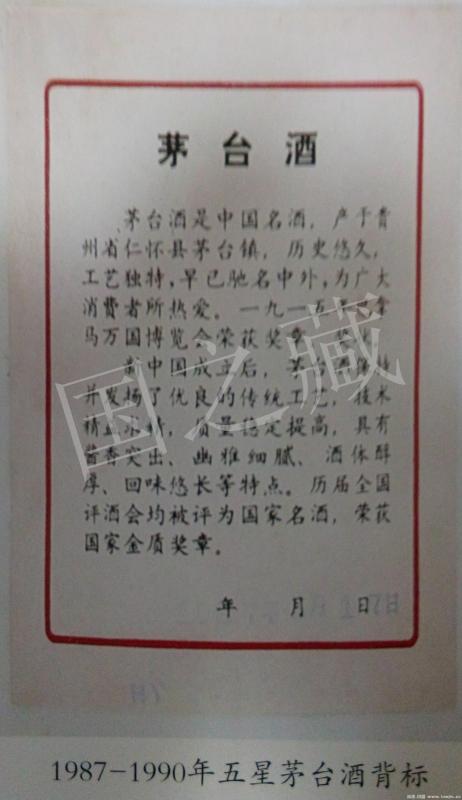 茅台酒
茅台酒是中国名酒，产于贵
州省仁怀县茅台镇，历史悠久，
工艺独特，早已驰名中外，为广大
消费者所热爱。一九一五年巴拿
马万国博览会荣获奖章、奖状。
新中国成立后，茅台酒保持
并发扬了优良的传统工艺，技术
精益求精，质量稳定提高，具有
酱香突出、幽雅细腻、酒体醇
厚、回味悠长等特点。历届全国
评酒会均被评为国家名酒，荣获
国家金质奖章。
年 月 日
国之藏
1987-1990年五星茅台酒背标